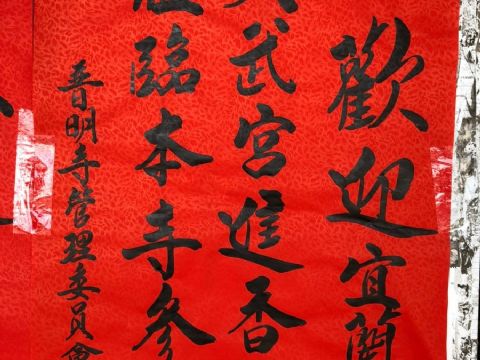 歡迎宜蘭
武宮進香
臨本寺參
普明寺管理委員會